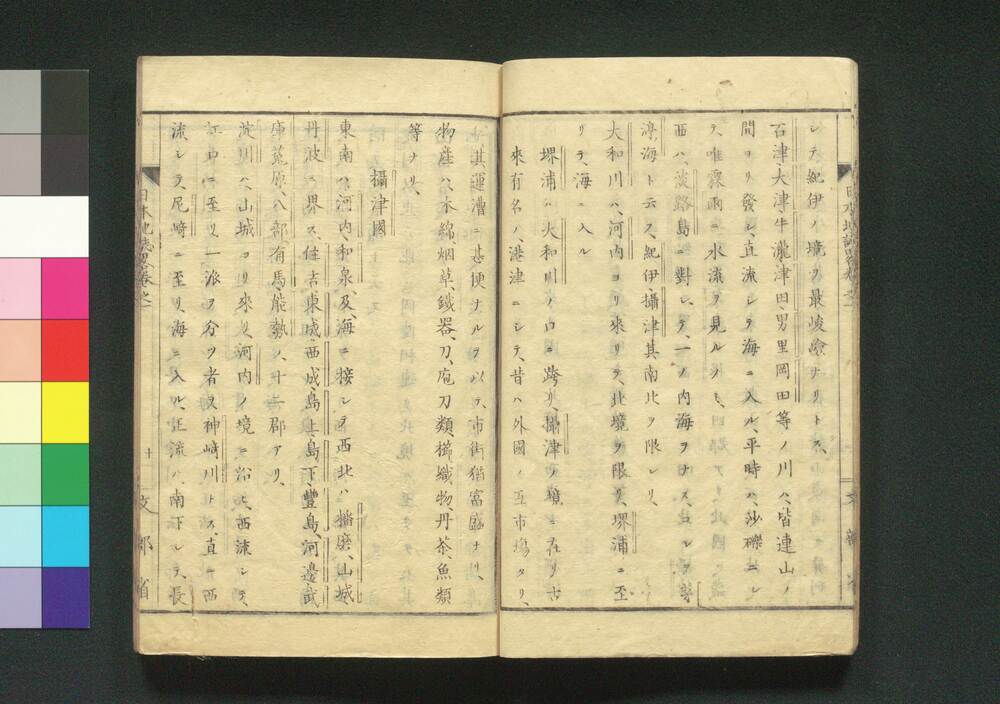 シテ、紀伊ノ境ヲ最峻嶮ナリトス、
石津、大津、牛瀧、津田、男里、岡田等ノ川ハ、皆連山ノ
間ヨリ發シ、直流シテ海ニ入ル、平時ハ沙礫ニシ
テ、唯霖雨ニ水流ヲ見ルノミ、
西ハ、淡路島ニ對シテ、一ノ内海ヲナス、
海トス云、紀伊、攝津其南北ヲ限レリ、
大和川ハ、河内ヨリ來リテ、北境ヲ限リ、堺浦ニ至
リテ、海ニ入ル
堺浦ハ大和川ノ口ニ跨リ、攝津ノ嶺ニ在リ古
來有名ノ、港津ニシテ、昔ハ外國ノ互市場タリ、
其運漕ニ甚便ナルヲ以テ、市街猶富盛ナリ、
物産ハ、木綿、烟草、鐵器、刀、庖刀類、櫛、織物、丹、茶、魚類
等ナリ、
攝津國
東南ハ、河内和泉、及、海ニ接シテ西北ハ播磨、山城
丹波ニ界ス、住吉、東成、西成、島上、島下、豐島、河邊、武
庫、菟原、八部、有馬、能勢ノ、十二郡アリ、
淀川ハ、山城ヨリ來リ、河内ノ境ニ沿ヒ、西流シテ、
江口ニ至リ、一派ヲ分ツ者ヲ神崎川トス、直ニ西
流シテ、尼崎ニ至リ、海ニ入ル、正流ハ、南下シテ、長
日本地誌略卷之一
十
文部省